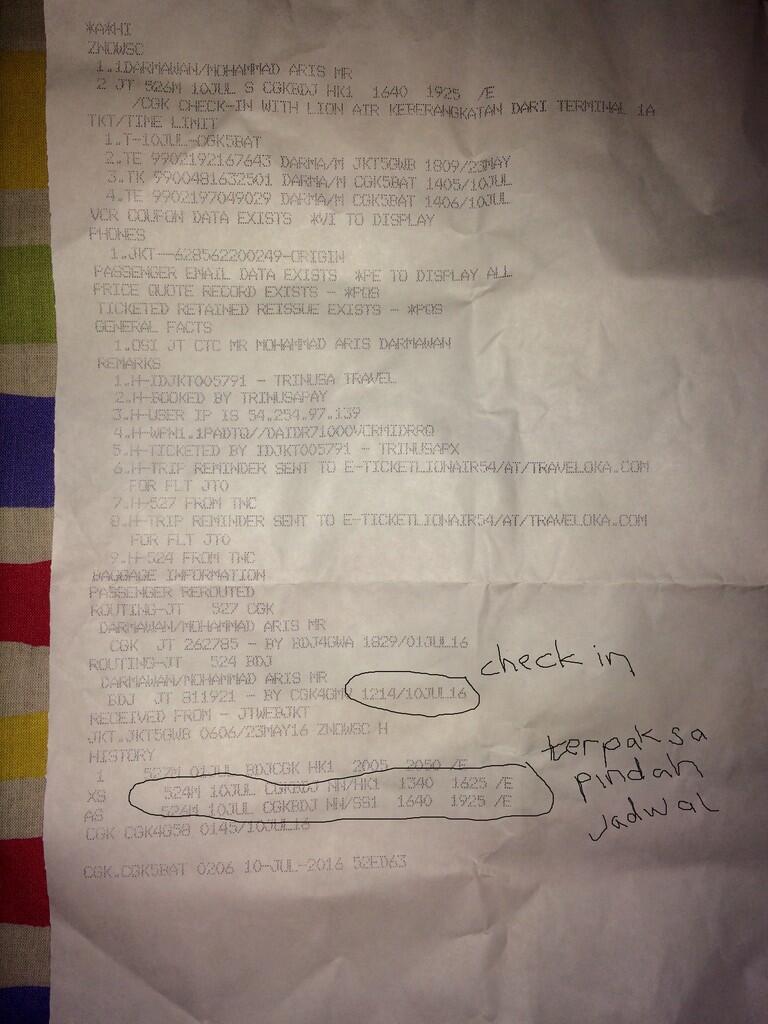 *A*HI
ZNOWSC
1.1DARMAWAN/MOHAMMAD ARIS MR
2 JT 526M 10JUL S CGKBDJ HK1 1640 1925 /E
/CGK CHECK-IN WITH LION AIR KEBERANGKATAN DARI TERMINAL 1A
TKT/TIME LIMIT
1.T-10JUL-CGK5BAT
2.TE 9902192167643 DARMA/M JKT5GWB 1809/23MAY
3.TK 9900481632501 DARMA/M CGK5BAT 1405/10JUL
4.TE 9902197049029 DARMA/M CGK5BAT 1406/10JUL
VCR COUPON DATA EXISTS *VI TO DISPLAY
PHONES
1.JKT--628562200249-ORIGIN
PASSENGER EMAIL DATA EXISTS *PE TO DISPLAY ALL
PRICE QUOTE RECORD EXISTS - *PQS
TICKETED RETAINED REISSUE EXISTS - *PQS
GENERAL FACTS
1.OSI JT CTC MR MOHAMMAD ARIS DARMAWAN
REMARKS
1.H-IDJKT005791 - TRINUSA TRAVEL
2.H-BOOKED BY TRINUSAPAY
3.H-USER IP IS 54.254.97.139
4.H-WPN1.1PADTQ//DAIDR71000VCRMIDRRQ
5.H-TICKETED BY IDJKT005791 - TRINUSAPX
6.H-TRIP REMINDER SENT TO E-TICKETLIONAIR54/AT/TRAVELOKA.COM
FOR FLT JT0
7.H-527 FROM TNC
8.H-TRIP REMINDER SENT TO E-TICKETLIONAIR54/AT/TRAVELOKA.COM
FOR FLT JT0
9.H-524 FROM TNC
BAGGAGE INFORMATION
PASSENGER REROUTED
ROUTING-JT 527 CGK
DARMAWAN/MOHAMMAD ARIS MR
CGK JT 262785 - BY BDJ4GWA 1829/01JUL16
ROUTING-JT 524 BDJ
DARMAWAN/MOHAMMAD ARIS MR
BDJ JT 811921 - BY 1214/10JUL16 check in
RECEIVED FROM - JTWEBJKT
JKT.JKT5GWB 0606/23MAY16 ZNOWSC H
HISTORY
1 527M 01JUL BDJCGK HK1 2005 2050 /E
XS 524M 10JUL CGKBDJ NN/HK1 1340 1625 /E
AS 526M 10JUL CGKBDJ NN/SS1 1640 1925 /E
terpaksa
pindah
jadwal
CGK CGK4GS8 0145/10JUL16
CGK.CGK5BAT 0206 10-JUL-2016 52ED63